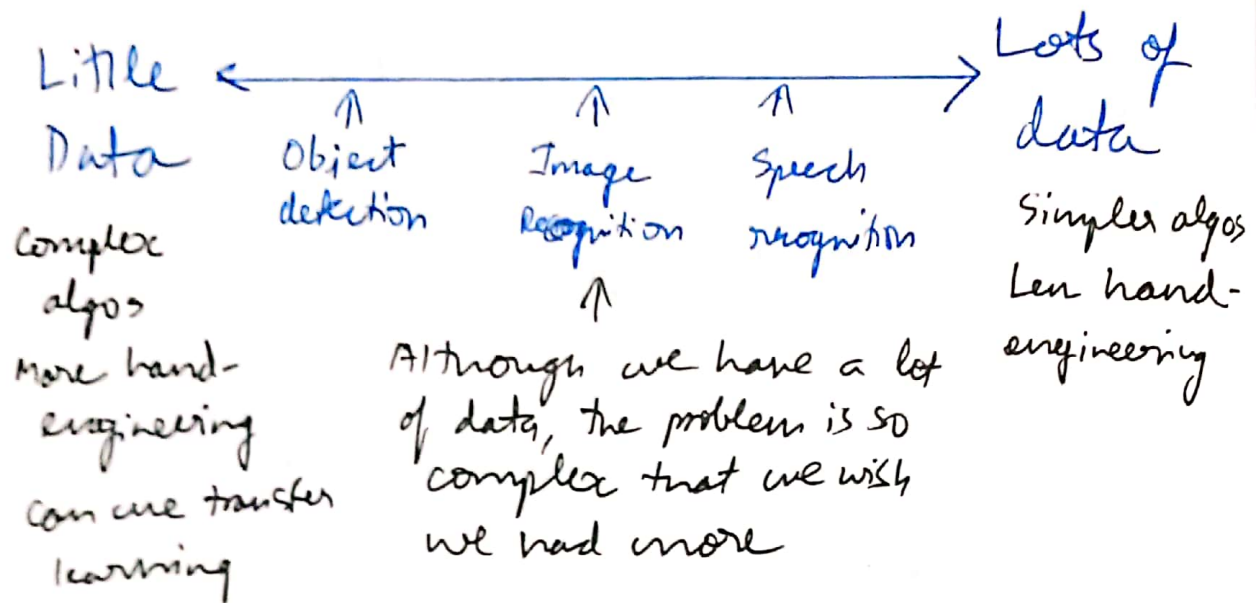 Little
Data
Lots of
data
Object
detection
Image
Recognition
Speech
recognition
Complex
algos
More hand-
engineering
can use transfer
learning
Although we have a lot
of data, the problem is so
complex that we wish
we had more
Simpler algos
Less hand-
engineering